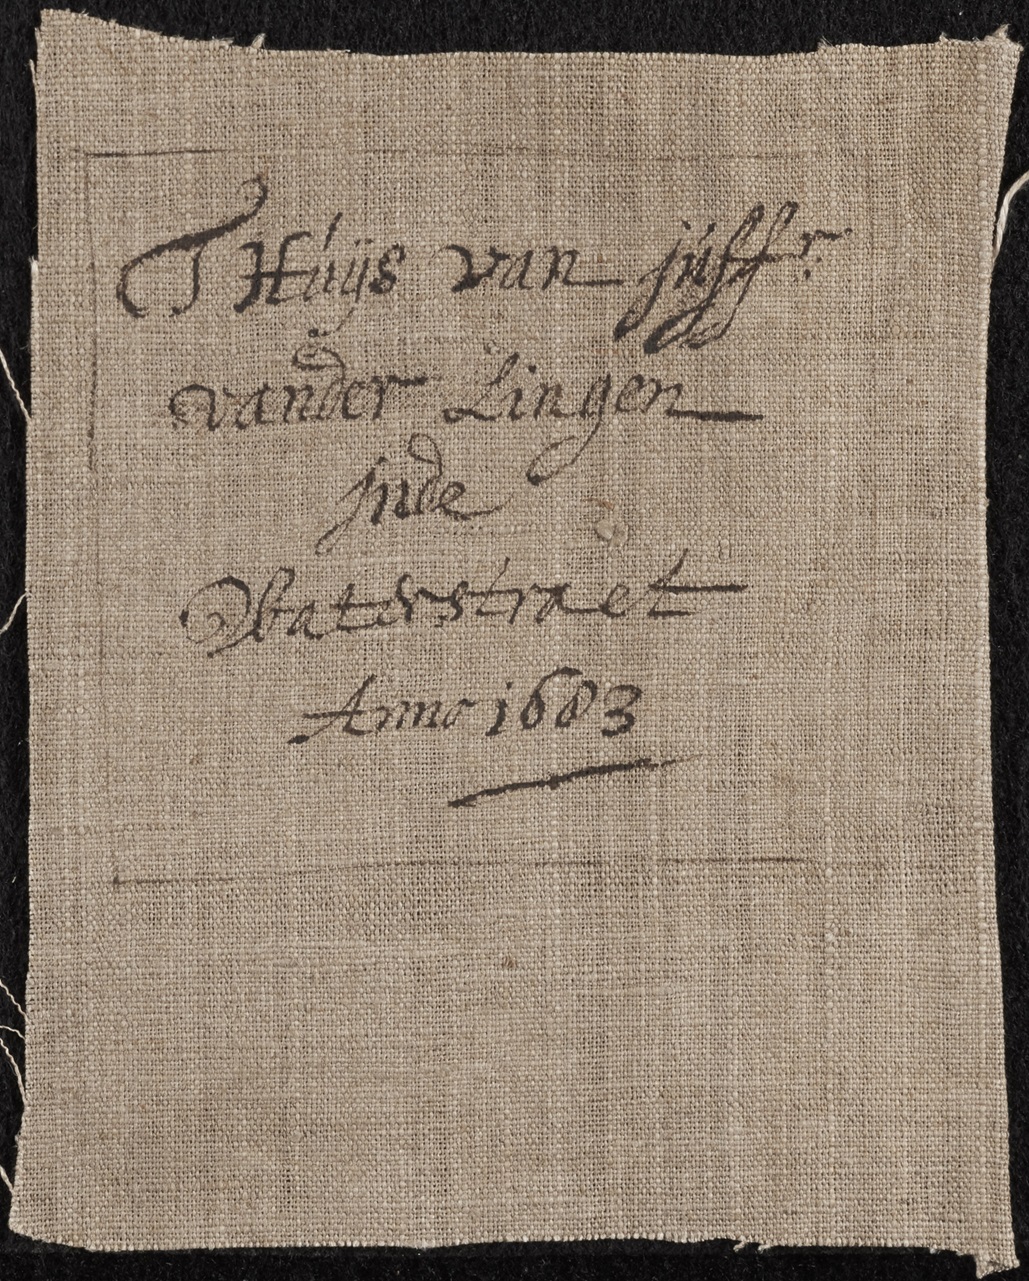 T Huijs van juffr
vander Lingen
jnde
Waterstraet
Anno 1683